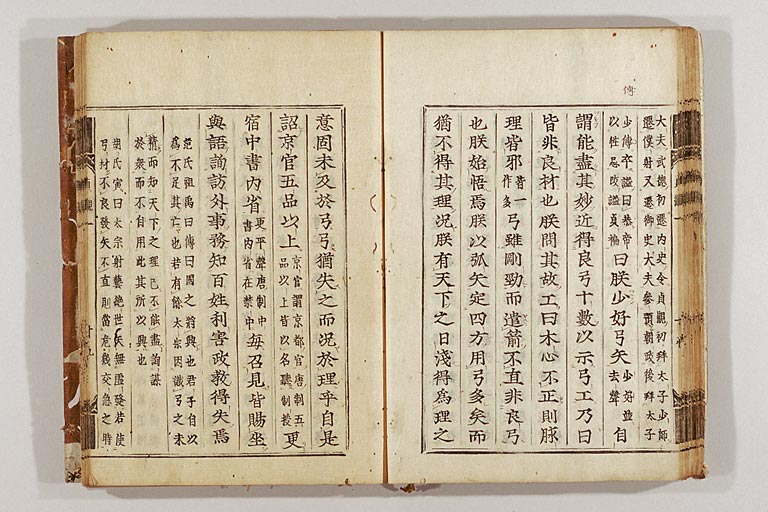 傳
大夫武德初遷內史令貞觀初拜太子少師
遷僕射又遷御史大夫參預朝政後拜太子
少傅卒謚曰恭帝
以性忌改謚貞褊
曰朕少好弓矢
少好並
去聲
自
謂能盡其妙近得良弓十數以示弓工乃曰
皆非良材也朕問其故工曰木心不正則脉
理皆邪
皆一
作多
弓雖剛勁而遣箭不直非良弓
也朕始悟焉朕以弧矢定四方用弓多矣而
猶不得其理況朕有天下之日淺得為理之
意固未及於弓弓猶失之而況於理乎自是
詔京官五品以上
京官謂京都官唐制五
品以上皆以名聽制授
更
宿中書內省
更平聲唐制中
書內省在禁中
每召見皆賜坐
與語詢訪外事務知百姓利害政教得失焉
范氏祖禹曰傳曰國之將興也君子自以
為不足其亡也若有餘太宗因識弓之未
精而知天下之理己不能盡詢謀
於衆而不自用此其所以興也
胡氏寅曰太宗射藝絕世矢無虛發若使
弓材不良發矢不直則當危幾交急之時